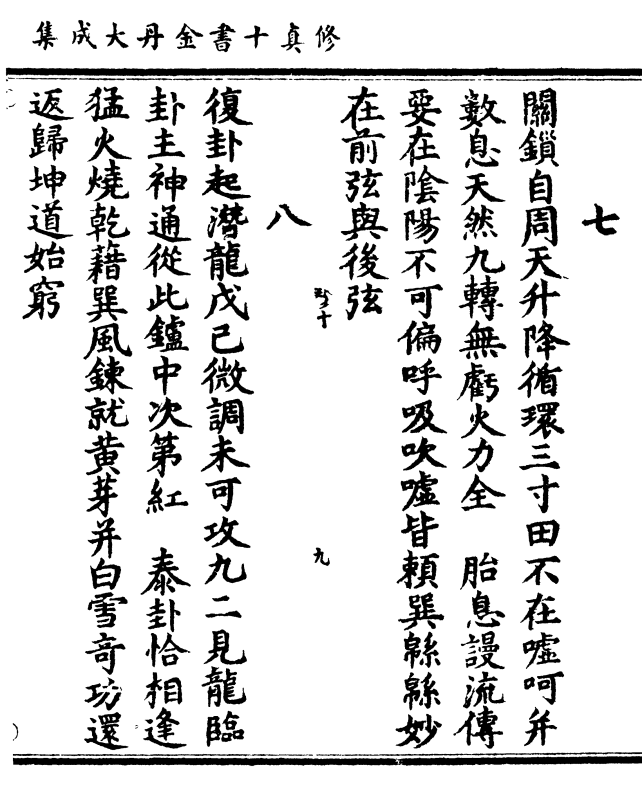 修真十書金丹大成集
七
關鎖自周天升降循環三寸田不在噓呵并
數息天然九轉無虧火力全　胎息謾流傳
要在陰陽不可偏呼吸吹噓皆頼巽緜緜妙
在前弦與後弦
九
八
復卦起潛龍戊己微調未可攻九二見龍臨
卦主神通從此鑪中次第紅　泰卦恰相逢
猛火燒乾藉巽風鍊就黄芽并白雪竒功還
返歸坤道始窮